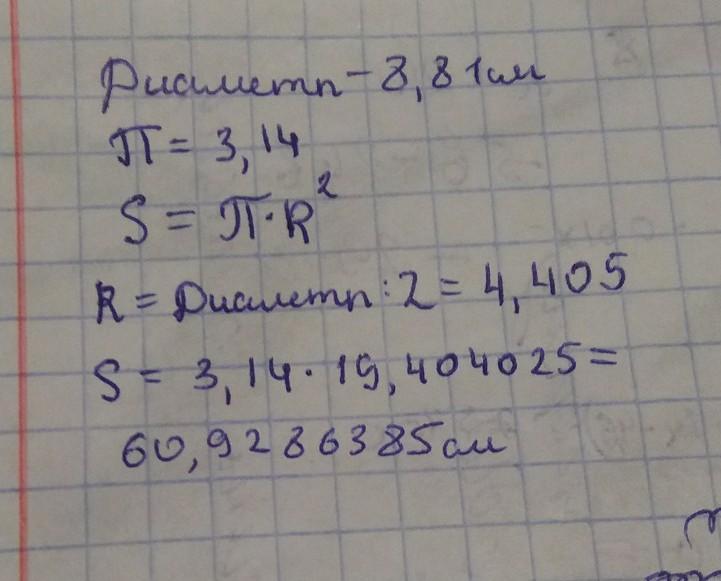 Диаметр - 8,81см
П = 3,14
S = П·R²
R = Диаметр : 2 = 4,405
S = 3,14 · 19,404025 =
60,9286385см